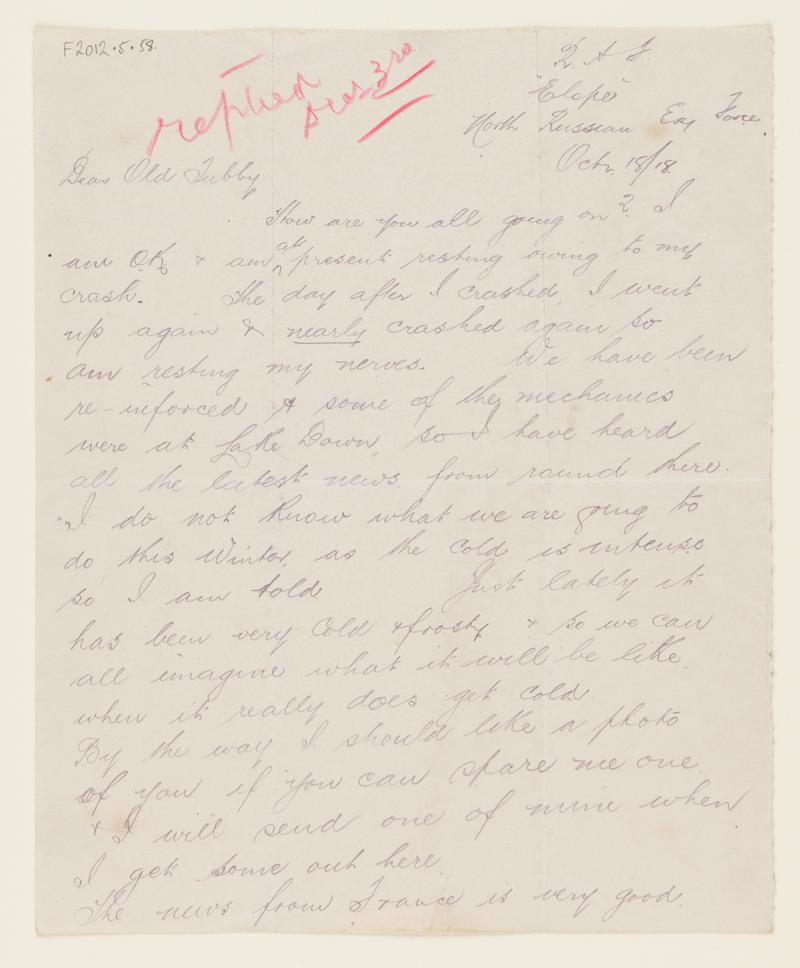 F2012.5.58.
replied
Dec 3rd
R A F
"Elope"
North Russian Exp Force
Octr. 18/18.
Dear Old Tubby
How are you all going on? I
am O.K. & am at present resting owing to my
crash. The day after I crashed, I went
up again & nearly crashed again so
am resting my nerves. We have been
re-inforced & some of the mechanics
were at Lake Down, so I have heard
all the latest news from round there.
I do not know what we are going to
do this Winter, as the cold is intense
so I am told. Just lately it
has been very cold & frosty & so we can
all imagine what it will be like
when it really does get cold.
By the way I should like a photo
of you if you can spare me one
& I will send one of mine when
I get some out here.
The news from France is very good.